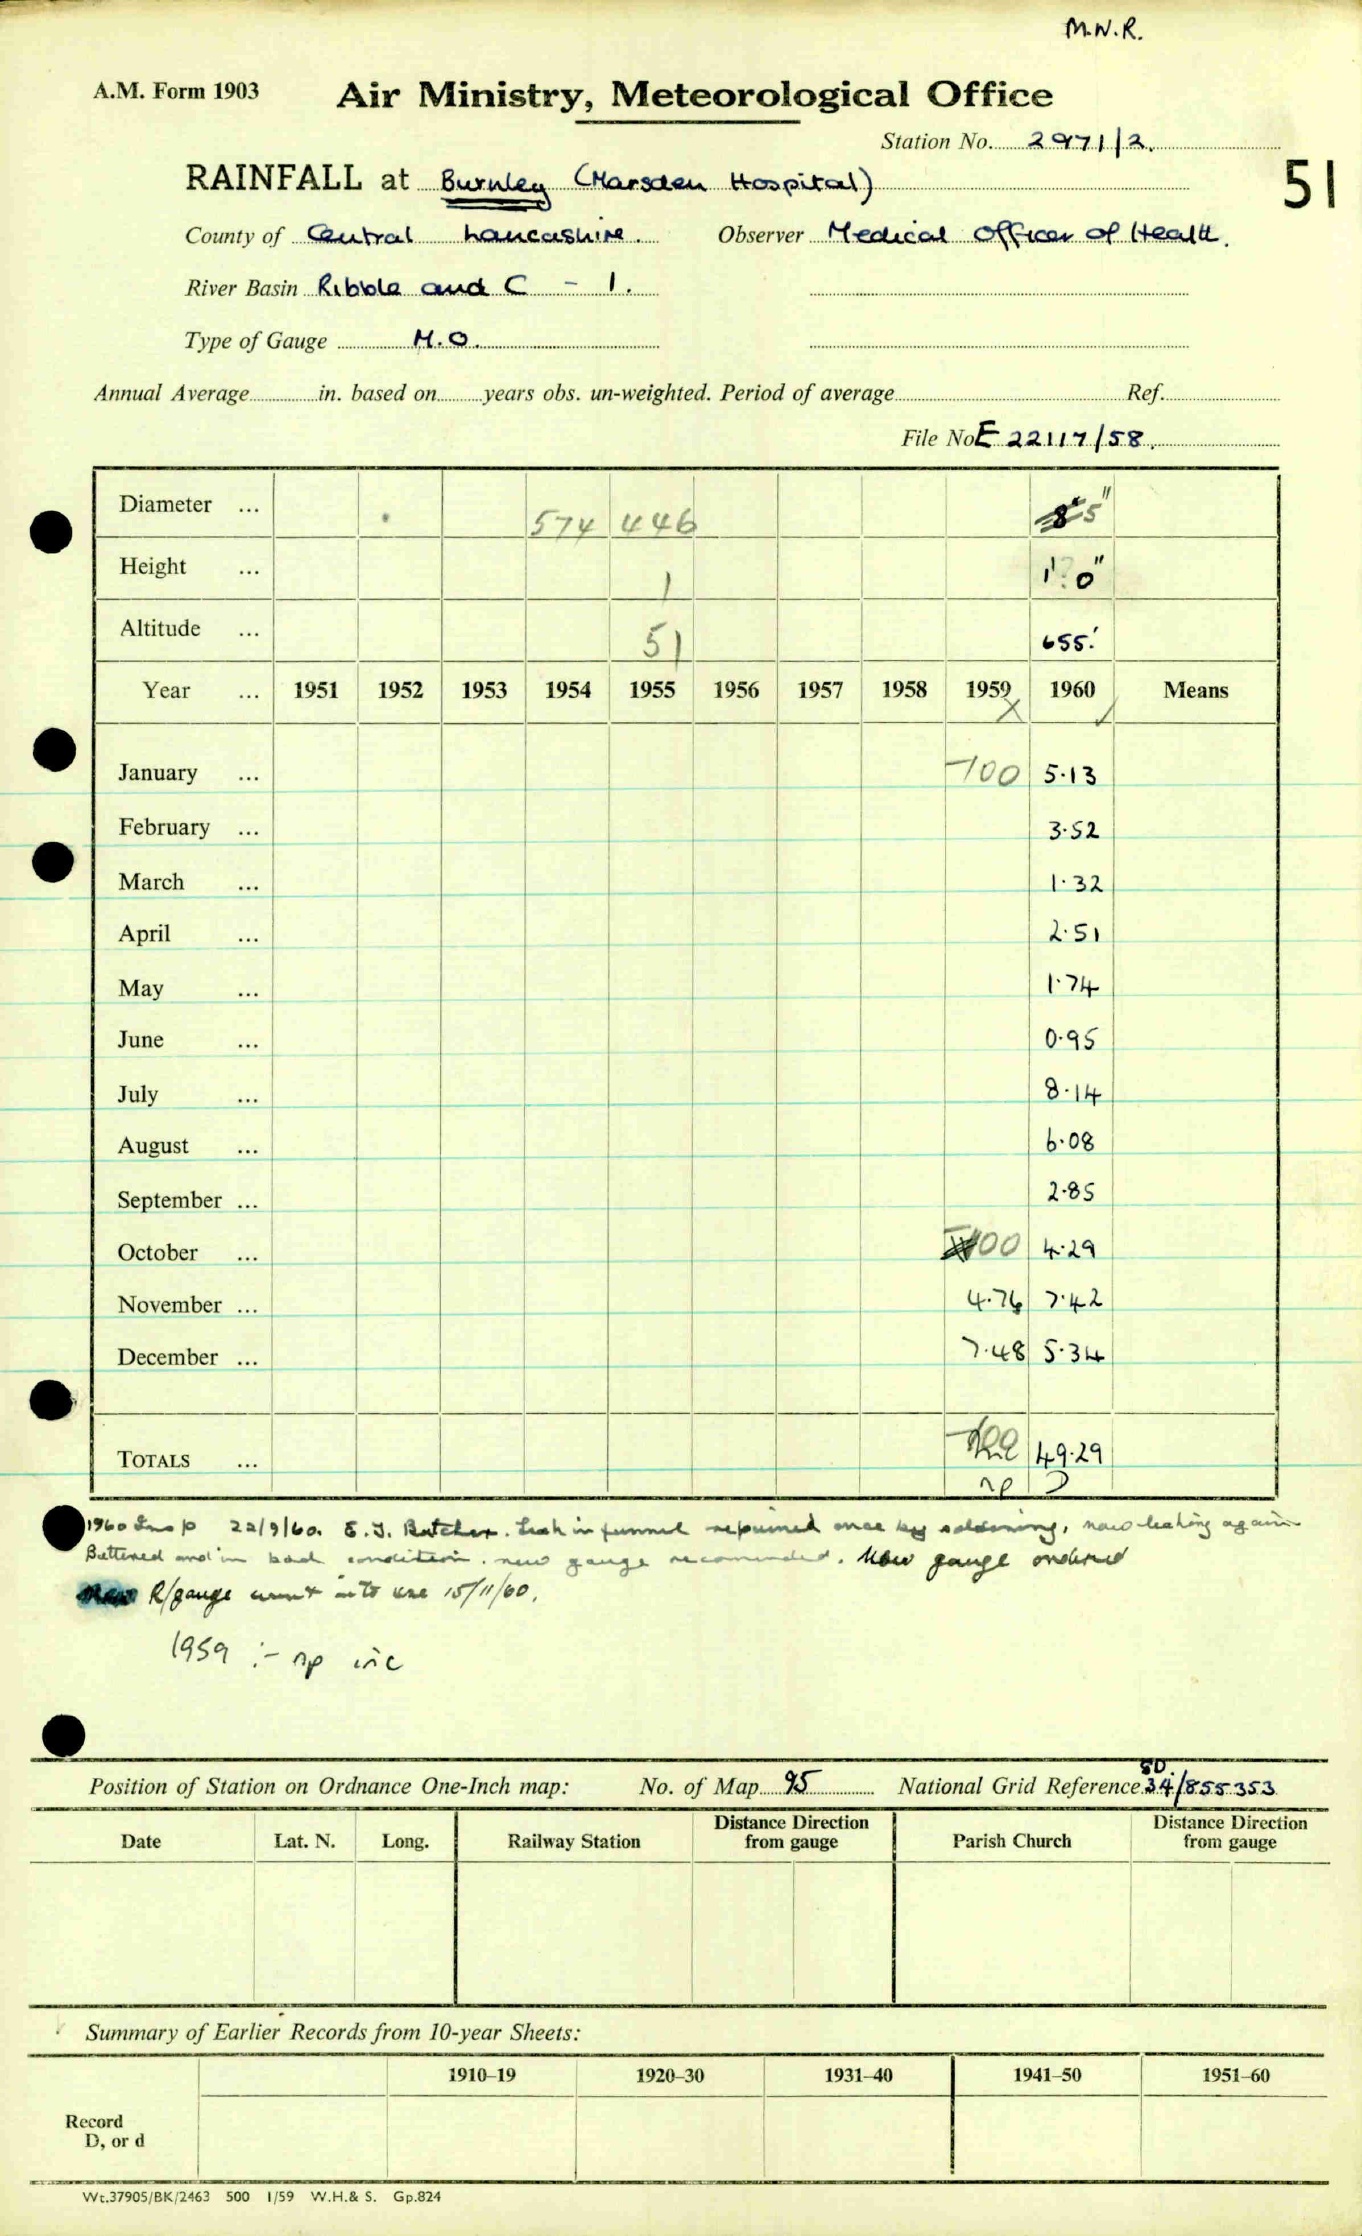 M.W.R.
A.M. Form 1903 Air Ministry, Meteorological Office
Station No. 2971/2.
51
RAINFALL at Burnley (Marsden Hospital)
County of Central Lancashire. Observer Medical Officer of Health.
River Basin Ribble and C - 1.
Type of Gauge M.O.
Annual Average in. based on years obs. un-weighted. Period of average Ref.
File No E 22117/58.
Diameter ... 574 446 5"
Height ... 1 1' 0"
Altitude ... 51 655'
Year ... 1951 1952 1953 1954 1955 1956 1957 1958 1959 1960 Means
X ✓
January ... -100 5.13
February ... 3.52
March ... 1.32
April ... 2.51
May ... 1.74
June ... 0.95
July ... 8.14
August ... 6.08
September ... 2.85
October ... 100 4.29
November ... 4.76 7.42
December ... 7.48 5.34
TOTALS ... 49.29
np D
1960 Insp 22/9/60. E. J. Butcher. Leak in funnel repaired once by soldering, now leaking again
Battered and in bad condition. new gauge recommended. New gauge ordered
New R/gauge went into use 15/11/60.
1959 :- np inc
Position of Station on Ordnance One-Inch map: No. of Map 95 National Grid Reference SD. 34/855353
Date Lat. N. Long. Railway Station Distance Direction from gauge Parish Church Distance Direction from gauge
Summary of Earlier Records from 10-year Sheets:
1910–19 1920–30 1931–40 1941–50 1951–60
Record
D, or d
Wt.37905/BK/2463 500 1/59 W.H.& S. Gp.824